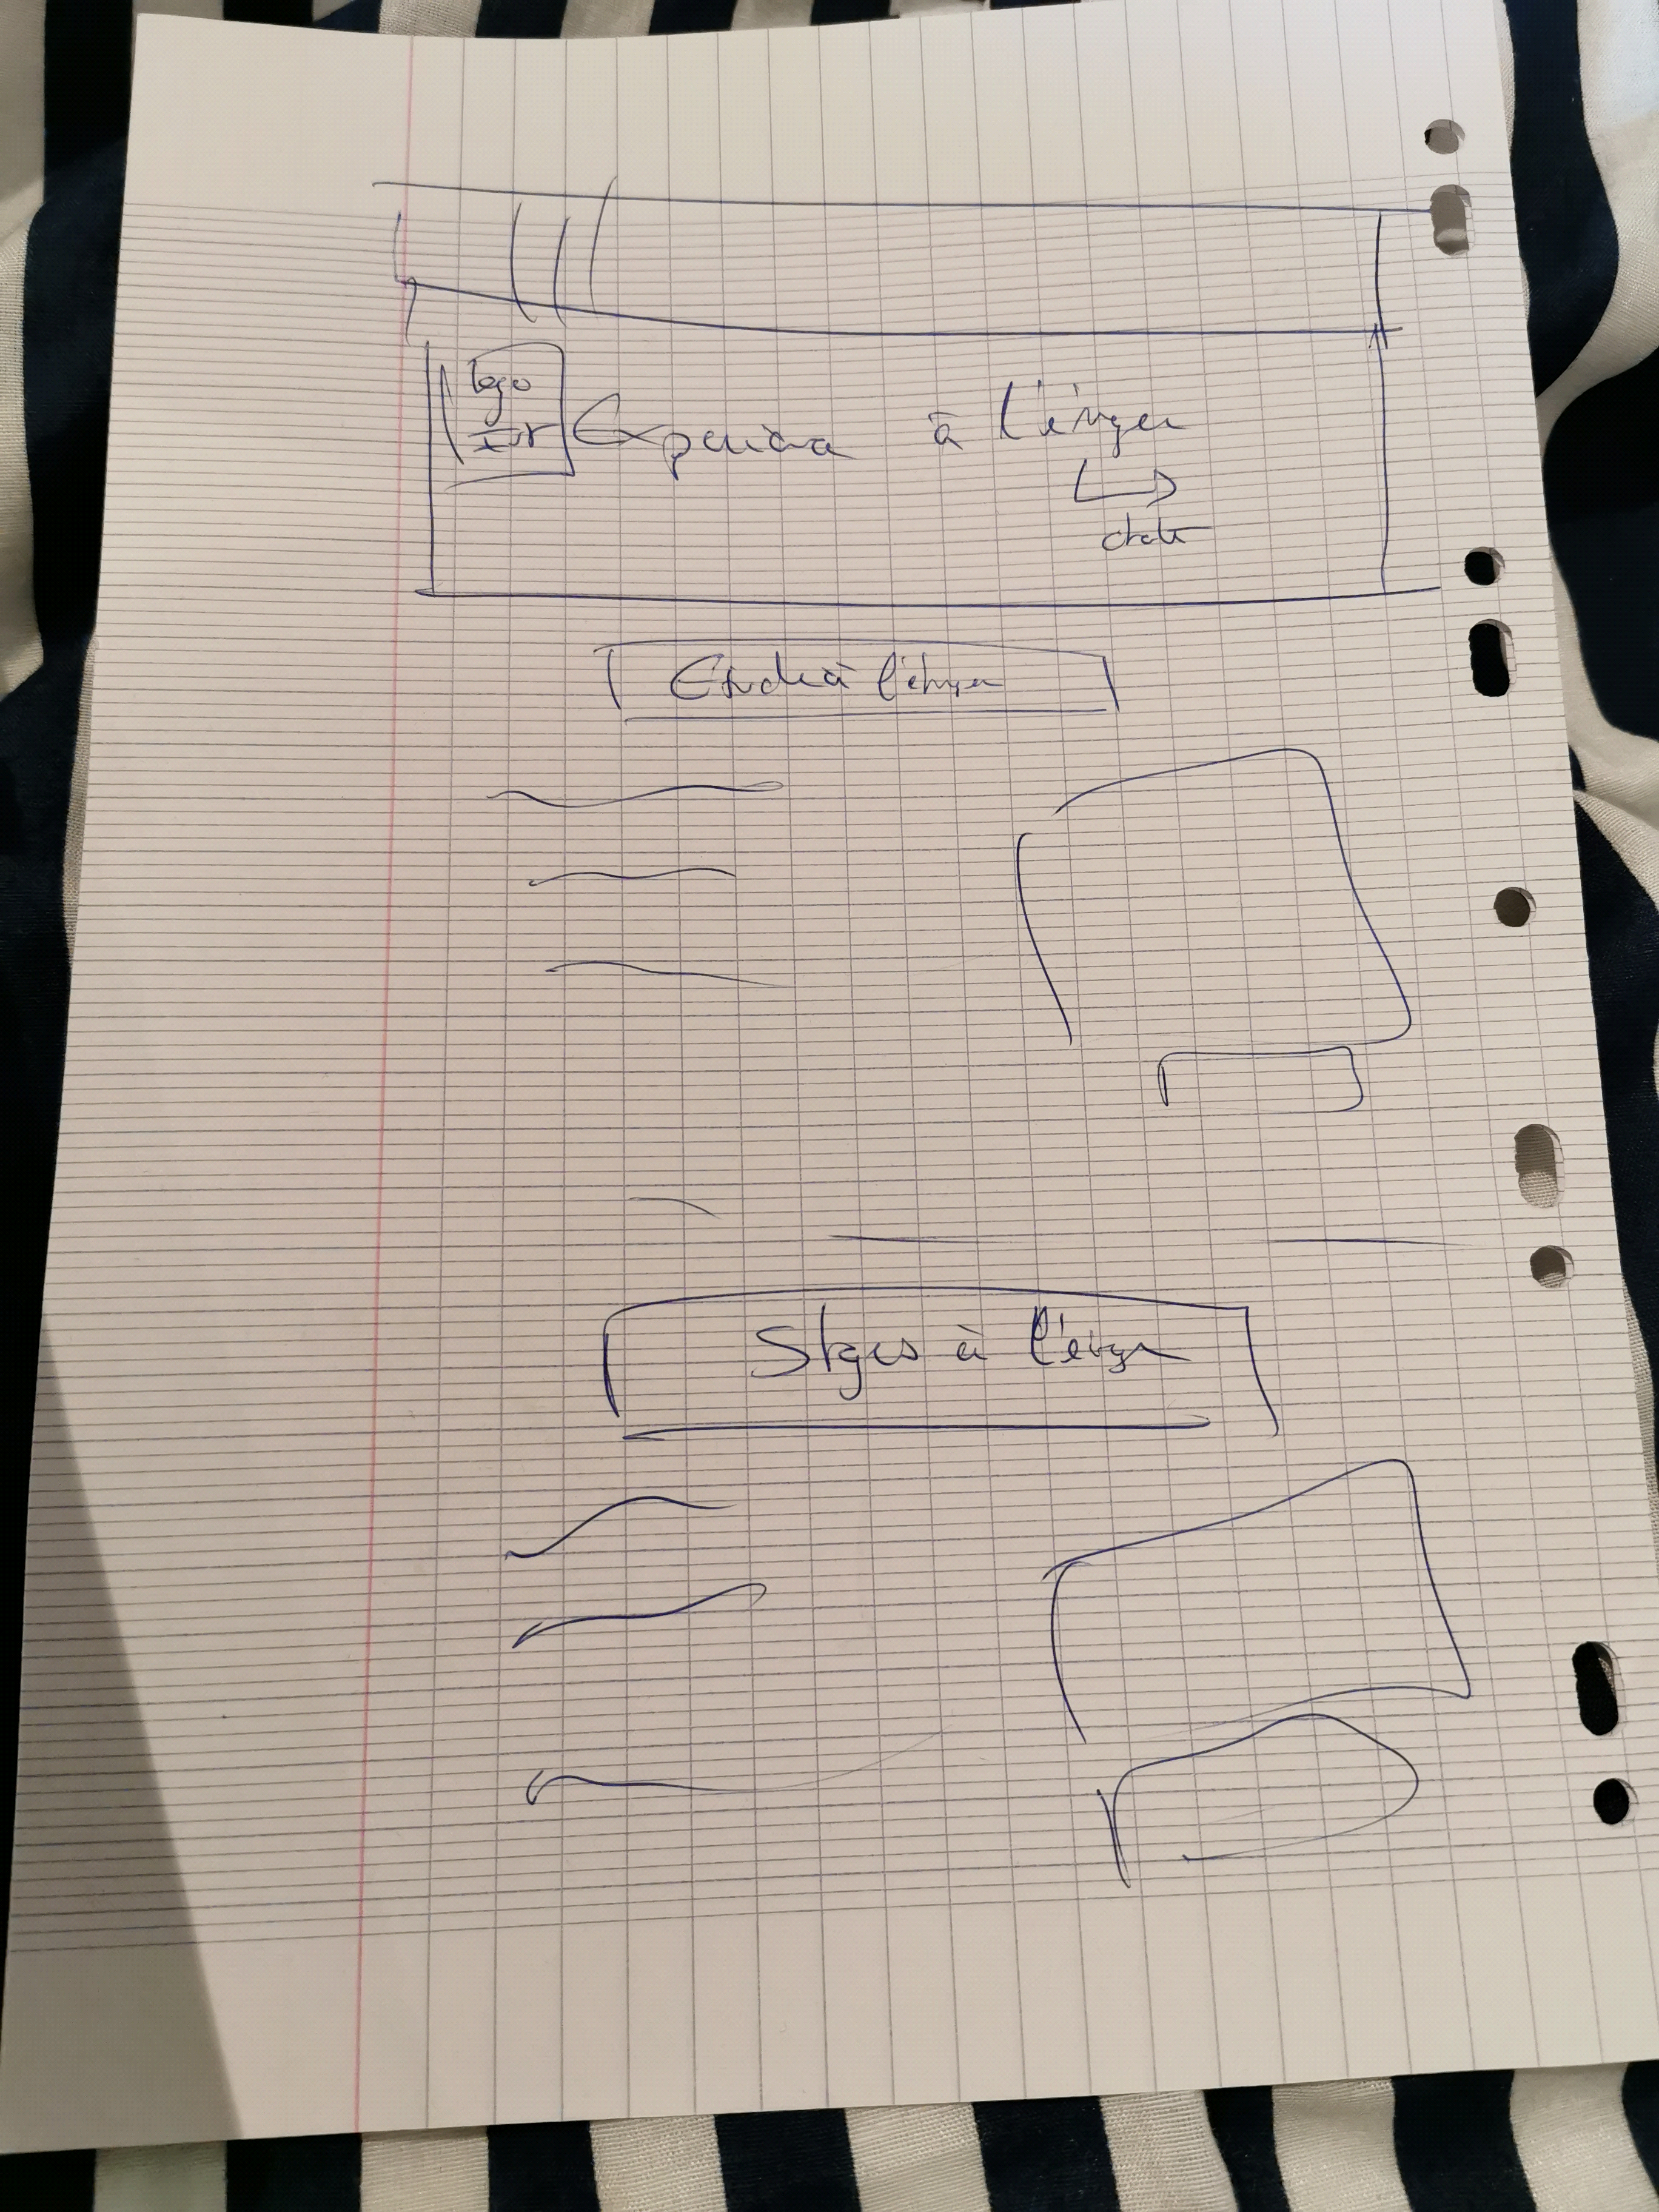 logo
Experience à l'étranger
Etude à l'étranger
Stages à l'étranger